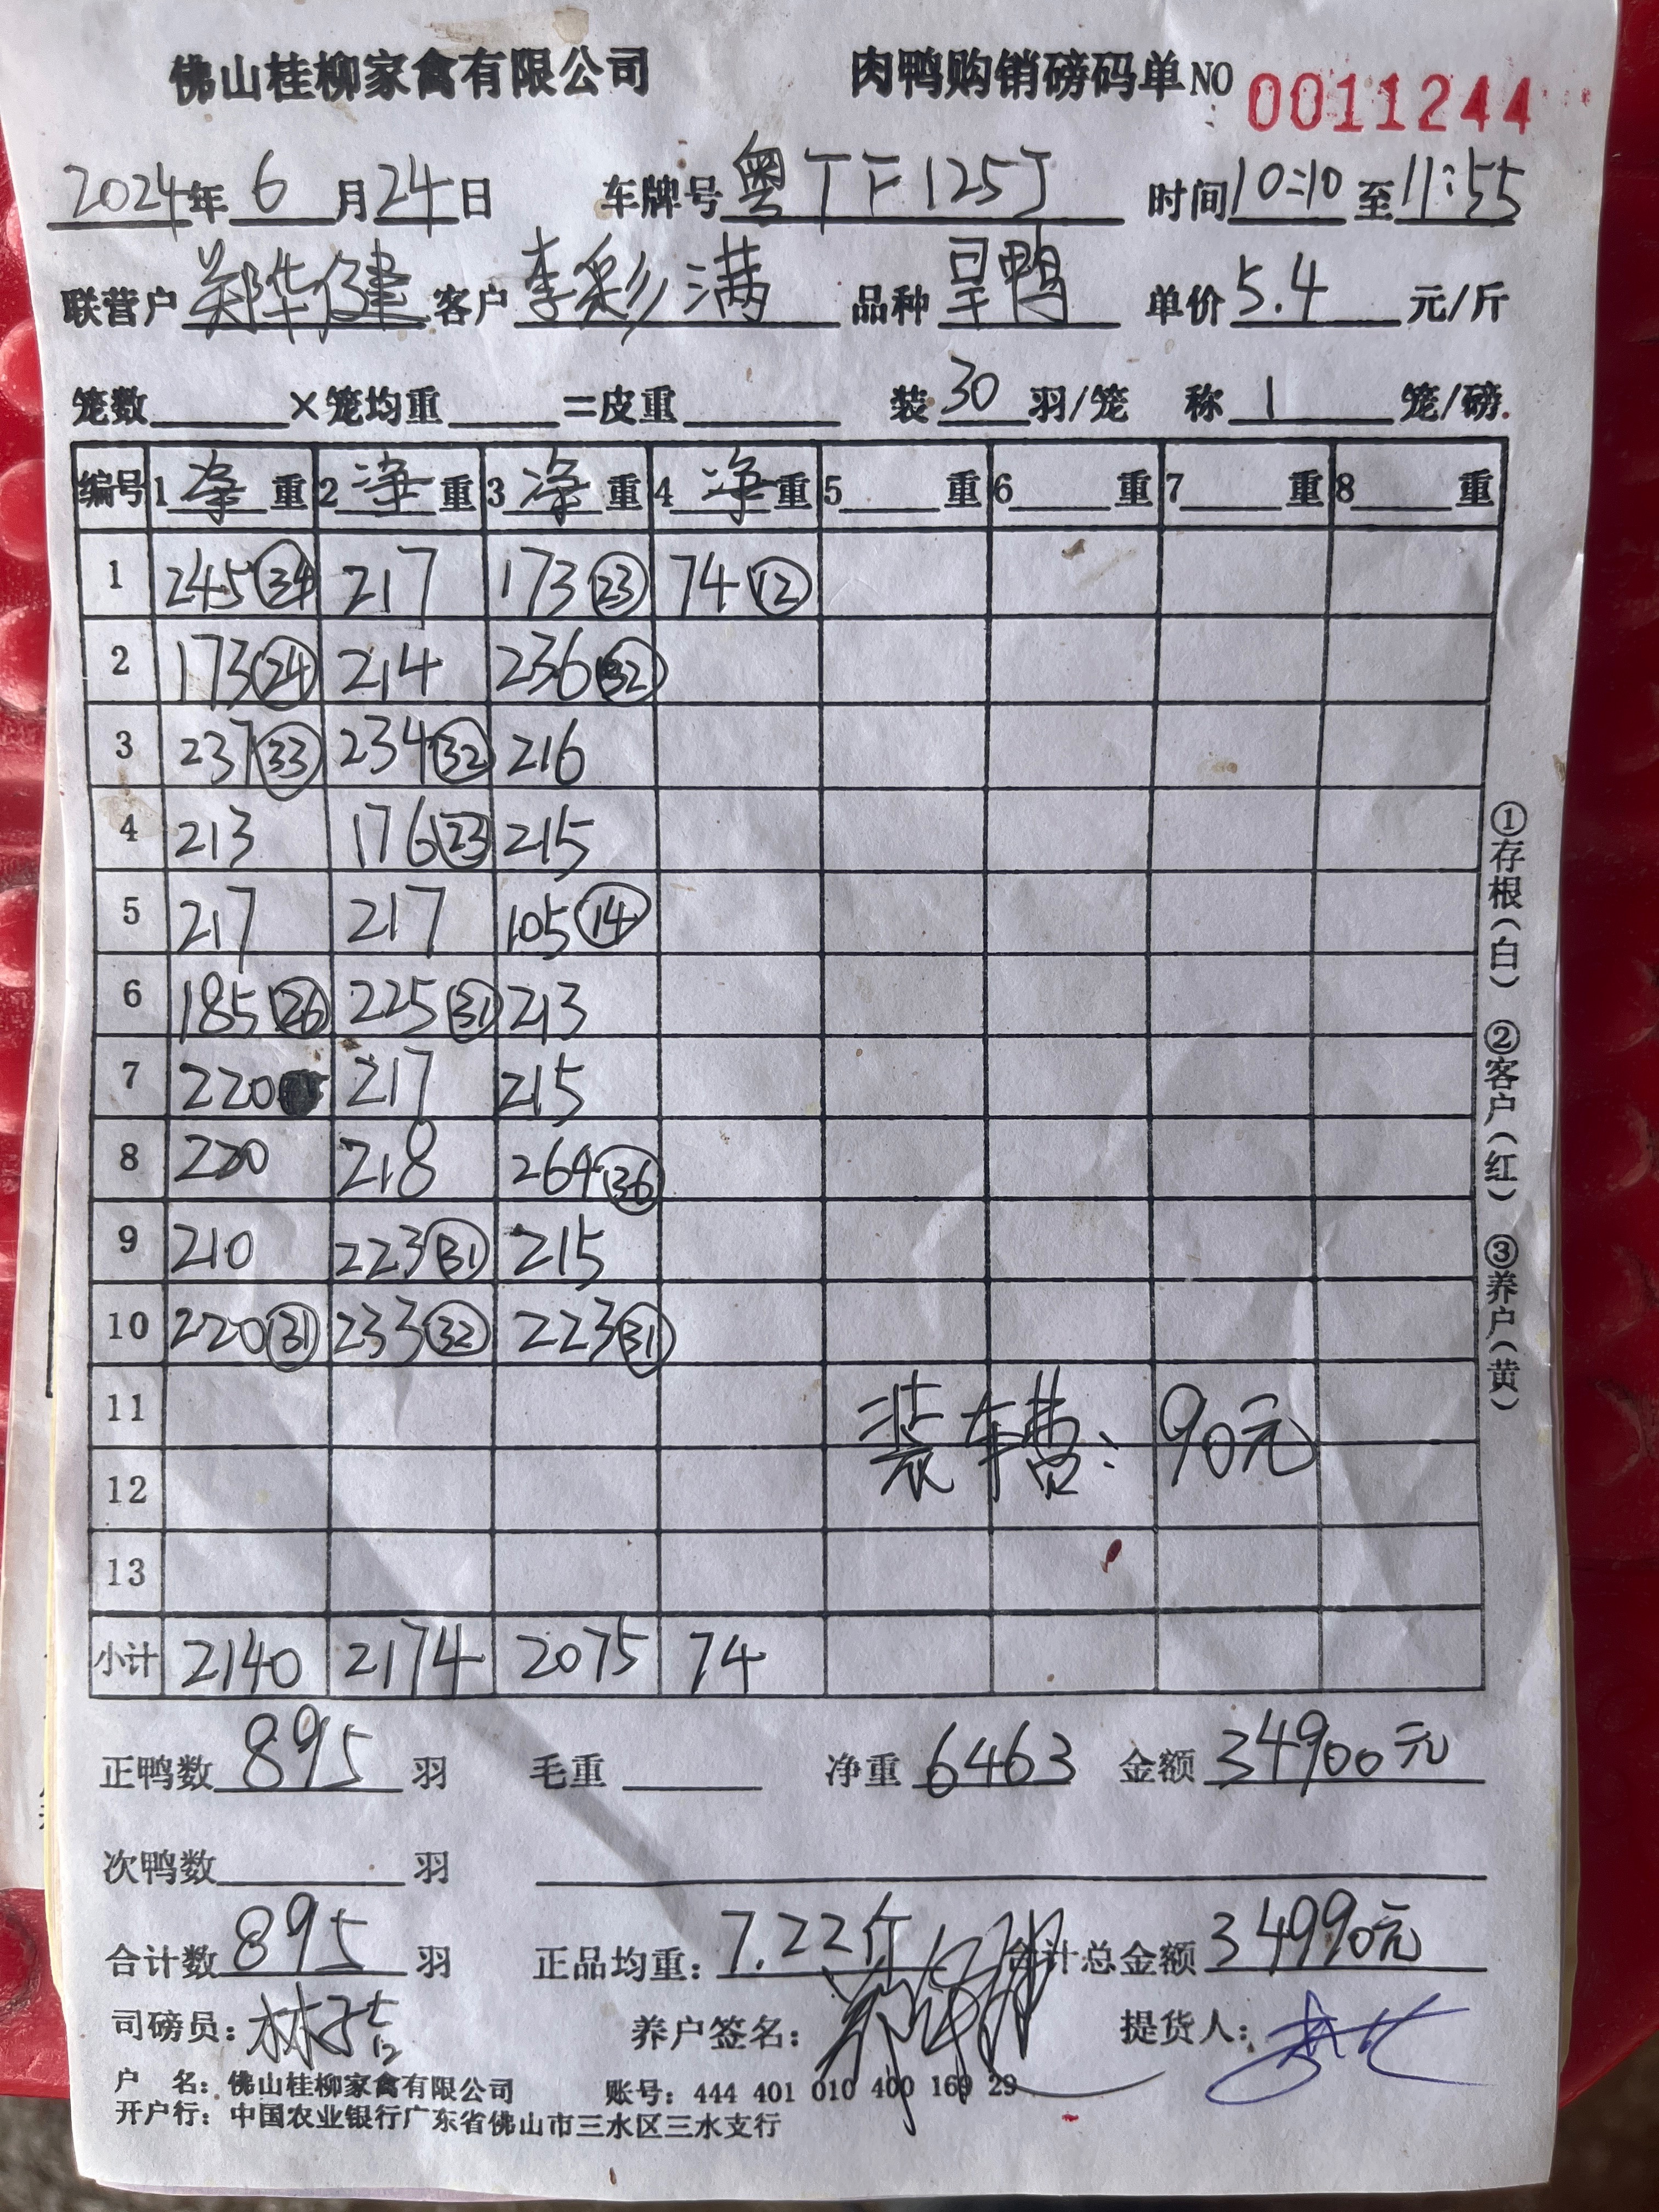 佛山桂柳家禽有限公司 肉鸭购销磅码单 NO 0011244
2024年 6 月 24 日 车牌号 粤TF125J 时间 10:10 至 11:55
联营户 郑华健 客户 李彩满 品种 呈鸭 单价 5.4 元/斤
笼数 ×笼均重 =皮重 装 30 羽/笼 称 1 笼/磅
编号 1 净 重 2 净 重 3 净 重 4 净 重 5 重 6 重 7 重 8 重
1 245 (34) 217 173 (23) 74 (12)
2 173 (24) 214 236 (32)
3 237 (33) 234 (32) 216
4 213 176 (23) 215
5 217 217 105 (14)
6 185 (26) 225 (31) 213
7 220 217 215
8 220 218 264 (36)
9 210 223 (31) 215
10 220 (31) 233 (32) 223 (31)
11
装车费: 90元
12
13
小计 2140 2174 2075 74
①存根(白) ②客户(红) ③养户(黄)
正鸭数 895 羽 毛重 净重 6463 金额 34900元
次鸭数 羽
合计数 895 羽 正品均重: 7.22斤 合计总金额 34990元
司磅员: 养户签名: 提货人:
户 名: 佛山桂柳家禽有限公司 账号: 444 401 010 400 169 29
开户行: 中国农业银行广东省佛山市三水区三水支行